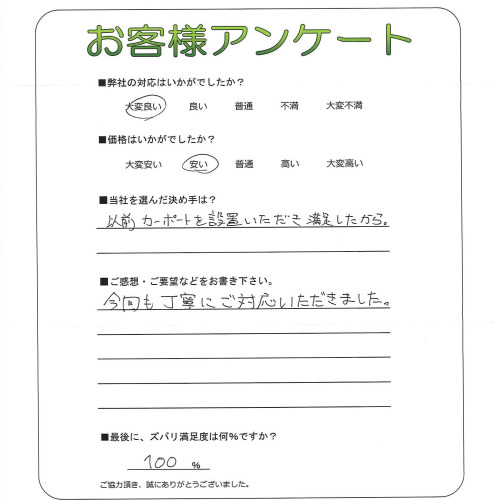 お客様アンケート
■弊社の対応はいかがでしたか？
大変良い 良い 普通 不満 大変不満
■価格はいかがでしたか？
大変安い 安い 普通 高い 大変高い
■当社を選んだ決め手は？
以前カーポートを設置いただき満足したから。
■ご感想・ご要望などをお書き下さい。
今回も丁寧にご対応いただきました。
■最後に、ズバリ満足度は何%ですか？
100 %
ご協力頂き、誠にありがとうございました。